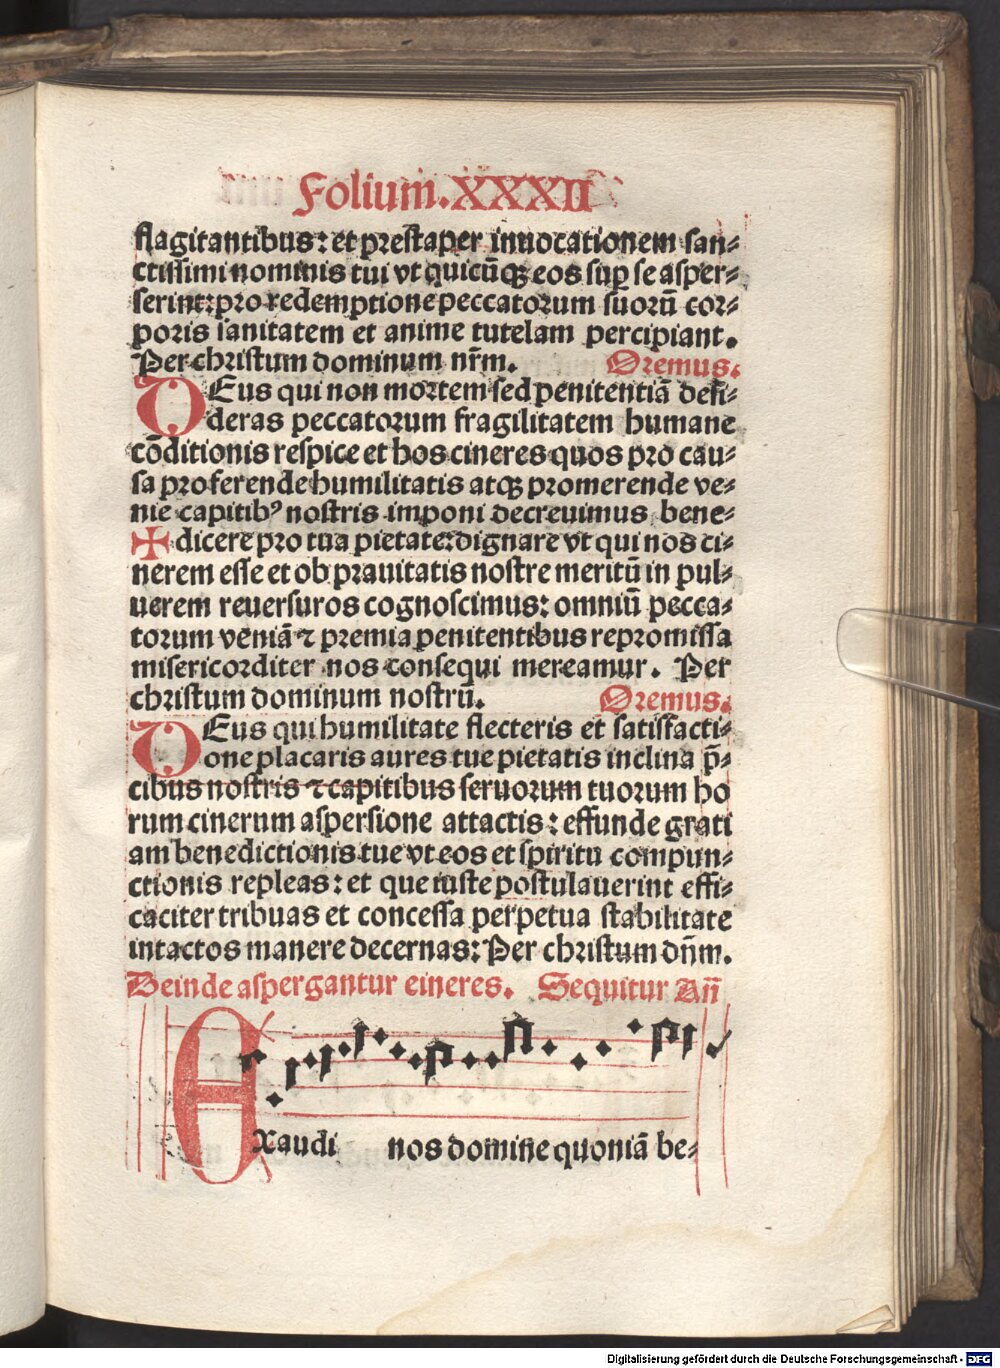 Folium.XXXII
flagitantibus: et prestaper inuocationem san⸗
ctissimi nominis tui vt quicūqꝫ eos sup se asper⸗
serint: pro redemptione peccatorum suorū cor⸗
poris sanitatem et anime tutelam percipiant.
Per christum dominum nr̄m. Oremus.
DEus qui non mortem sed penitentiā desi⸗
deras peccatorum fragilitatem humane
cōditionis respice et hos cineres quos pro cau⸗
sa proferende humilitatis atqꝫ promerende ve⸗
nie capitibꝰ nostris imponi decreuimus bene⸗
✠ dicere pro tua pietate: dignare vt qui nos ci⸗
nerem esse et ob prauitatis nostre meritū in pul⸗
uerem reuersuros cognoscimus: omniū pecca⸗
torum veniā ⁊ premia penitentibus repromissa
misericorditer nos consequi mereamur. Per
christum dominum nostrū. Oremus.
DEus qui humilitate flecteris et satisfacti⸗
one placaris aures tue pietatis inclina p̄⸗
cibus nostris ⁊ capitibus seruorum tuorum ho
rum cinerum aspersione attactis: effunde grati
am benedictionis tue vt eos et spiritu compun⸗
ctionis repleas: et que iuste postulauerint effi⸗
caciter tribuas et concessa perpetua stabilitate
intactos manere decernas: Per christum dn̄m.
Deinde aspergantur cineres. Sequitur An̄
Exaudi nos domine quoniā be⸗
Digitalisierung gefördert durch die Deutsche Forschungsgemeinschaft - DFG